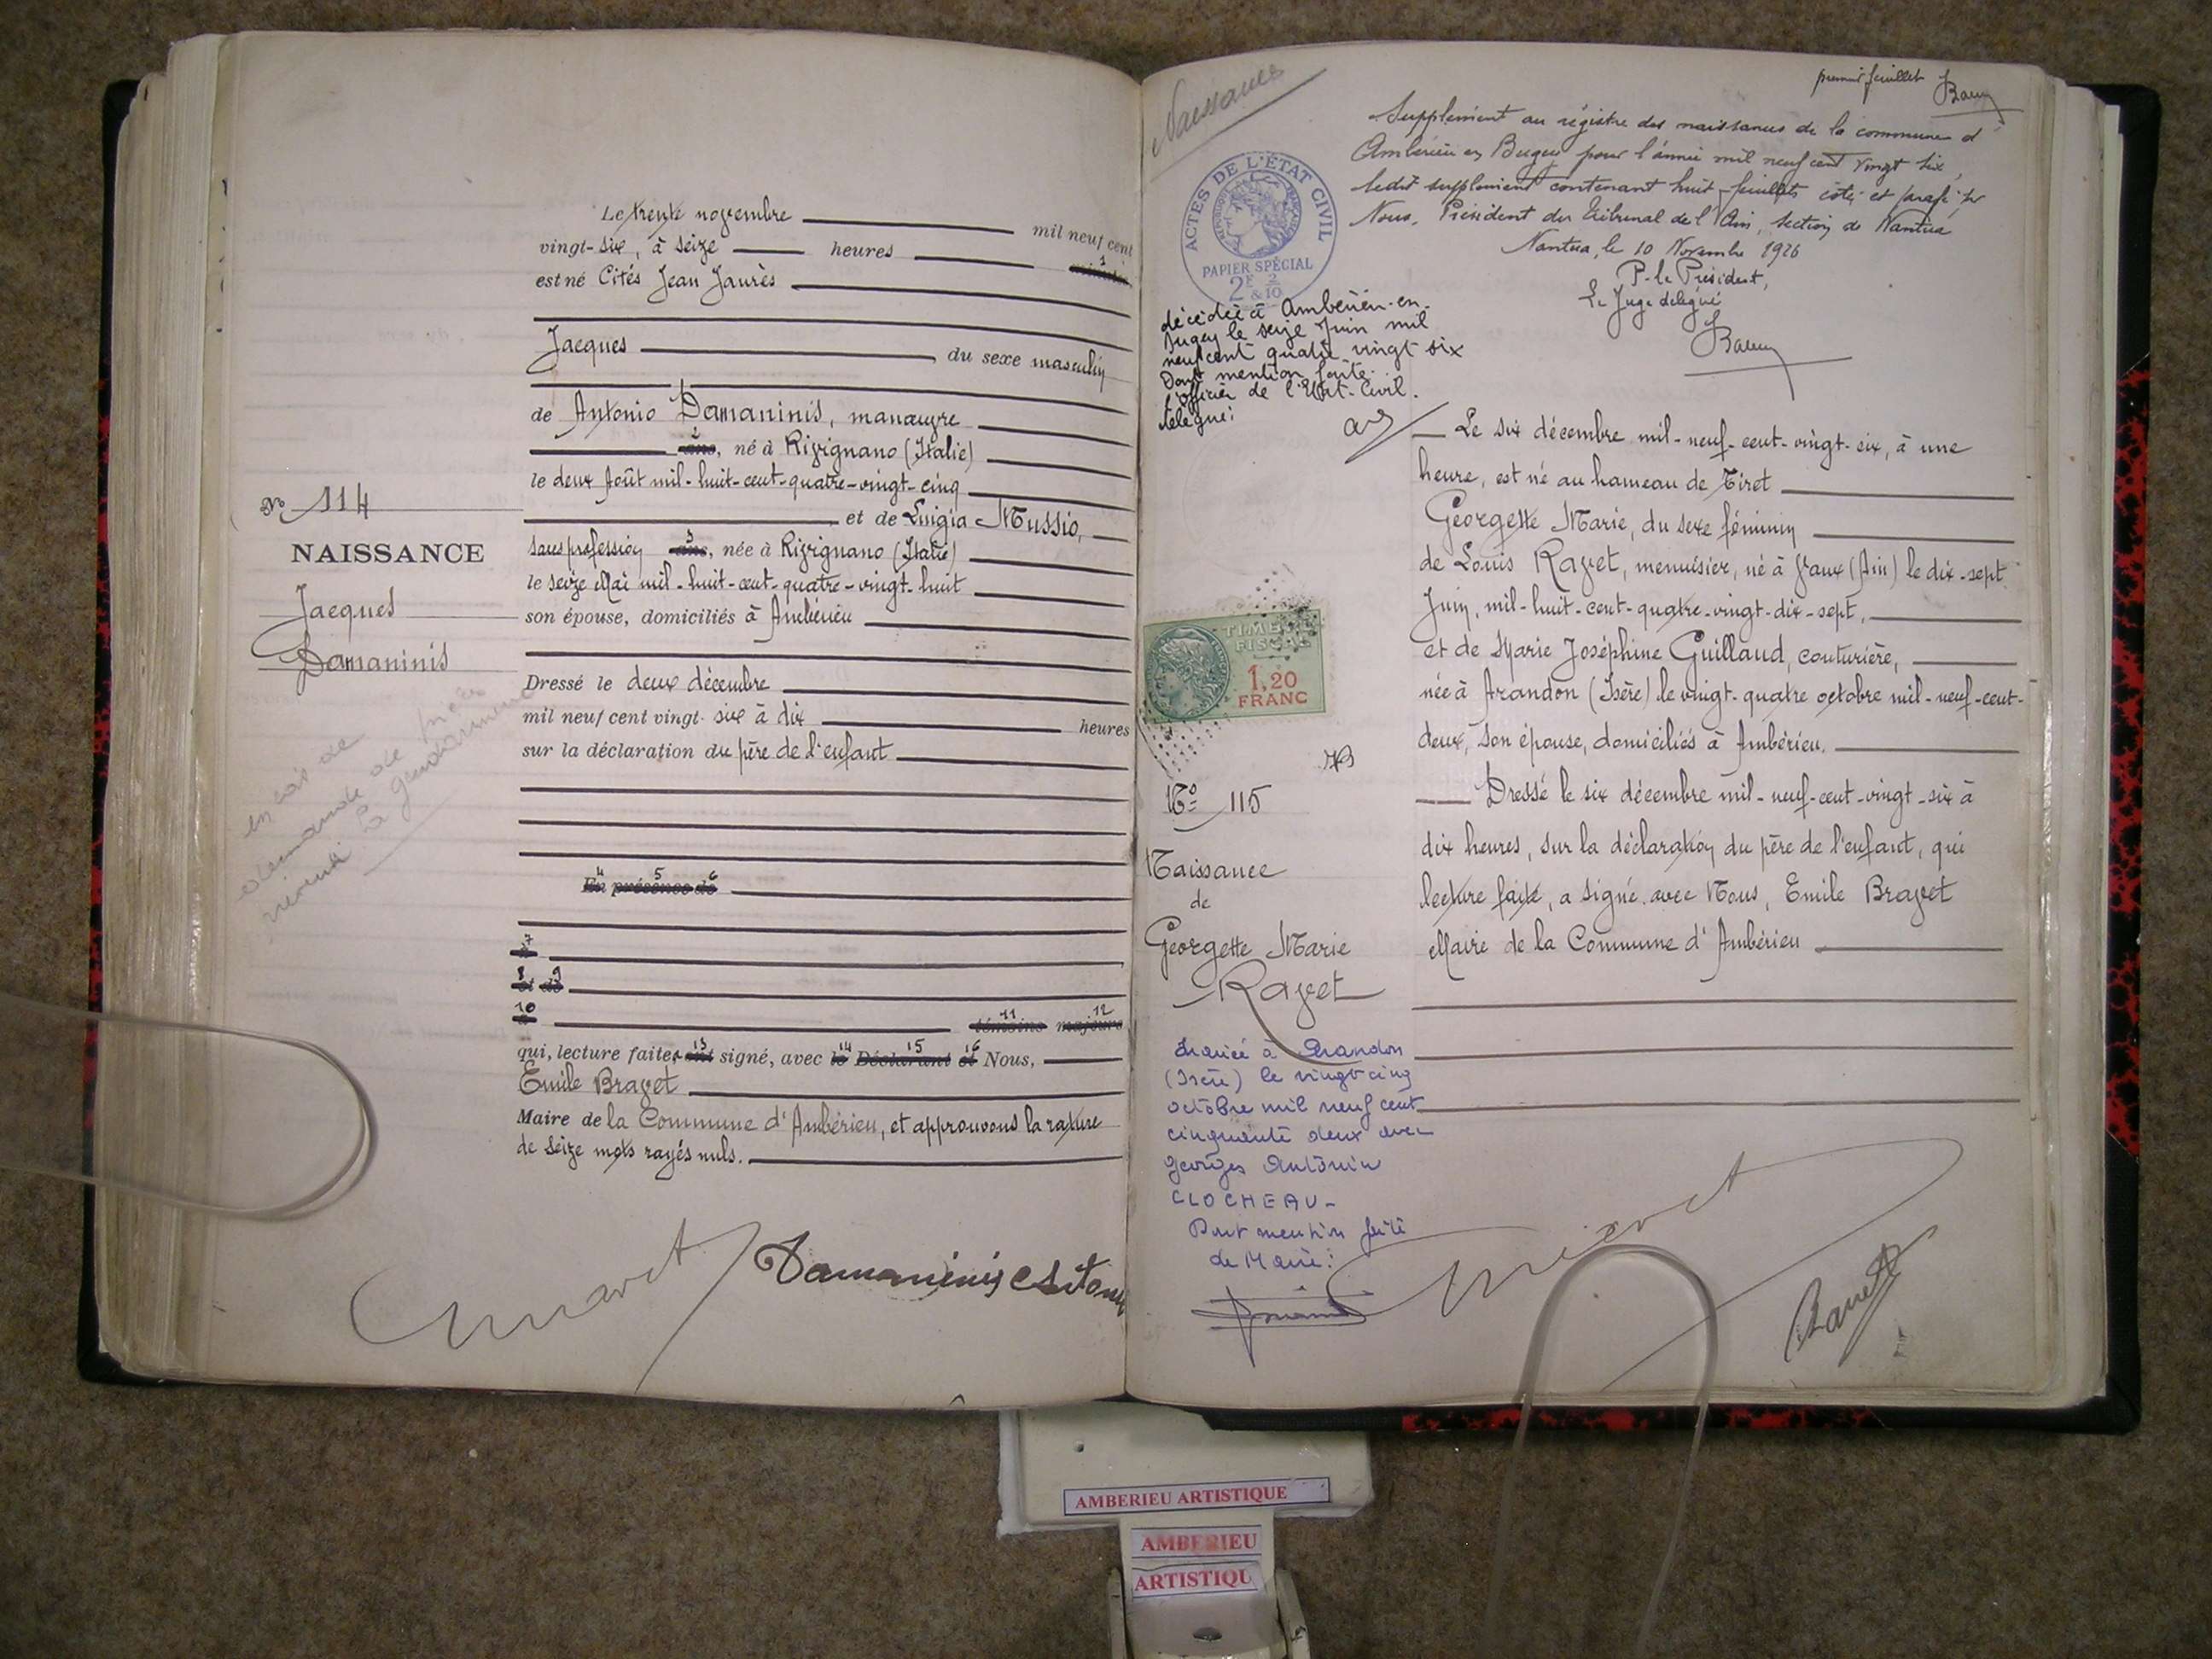 Le trente novembre mil neuf cent
vingt-six, à seize heures
est né Cités Jean Jaurès
Jacques , du sexe masculin
de Antonio Damaninis, manœuvre
2
ans, né à Rivignano (Italie)
le deux Août mil-huit-cent-quatre-vingt-cinq
et de Luigia Mussio,
sans profession 3 ans, née à Rivignano (Italie)
le seize Mai mil-huit-cent-quatre-vingt-huit
son épouse, domiciliés à Ambérieu
Dressé le deux décembre
mil neuf cent vingt-six à dix heures
sur la déclaration du père de l'enfant
4 5 6
En présence de
7
à
8 9
et de
10
à
11 12
témoins majeurs
13 14 15 16
qui, lecture faite, a ont signé, avec le Déclarant et Nous,
Emile Bravet
Maire de la Commune d'Ambérieu, et approuvons la rature
de seize mots rayés nuls.
Damaninis
No 114
NAISSANCE
Jacques
Damaninis
en cas de
demande de
la gendarmerie
Naissance
premier feuillet
Supplément au régistre des naissances de la commune d'
Ambérieu en Bugey pour l'année mil neuf cent vingt six,
ledit supplément contenant huit feuillets cotés et parafés par
Nous, Président du Tribunal de l'Ain, section de Nantua
Nantua, le 10 Novembre 1926
P. le Président,
Le Juge délégué
ACTES DE L'ÉTAT CIVIL
RÉPUBLIQUE FRANÇAISE
PAPIER SPÉCIAL
2E 2
& 10
décédée à Ambérieu-en-
Bugey le seize Juin mil
neuf cent quatre vingt six
Dont mention faite.
l'officier de l'Etat-Civil.
délégué:
TIMBRE
FISCAL
1,20
FRANC
No 115
Naissance
de
Georgette Marie
Ravet
Mariée à Arandon
(Isère) le vingt cinq
octobre mil neuf cent
cinquante deux avec
Georges Antonin
CLOCHEAU-
Dont mention faite
Le Maire:
Le six décembre mil-neuf-cent-vingt-six, à une
heure, est né au hameau de Tiret
Georgette Marie, du sexe féminin
de Louis Ravet, menuisier, né à Vaux (Ain) le dix-sept
Juin, mil-huit-cent-quatre-vingt-dix-sept,
et de Marie Joséphine Guillaud, couturière,
née à Arandon (Isère) le vingt-quatre octobre mil-neuf-cent-
deux, son épouse, domiciliés à Ambérieu.
Dressé le six décembre mil-neuf-cent-vingt-six à
dix heures, sur la déclaration du père de l'enfant, qui
lecture faite, a signé avec Nous, Emile Bravet
Maire de la Commune d'Ambérieu
Ravet
AMBERIEU ARTISTIQUE
AMBERIEU
ARTISTIQU